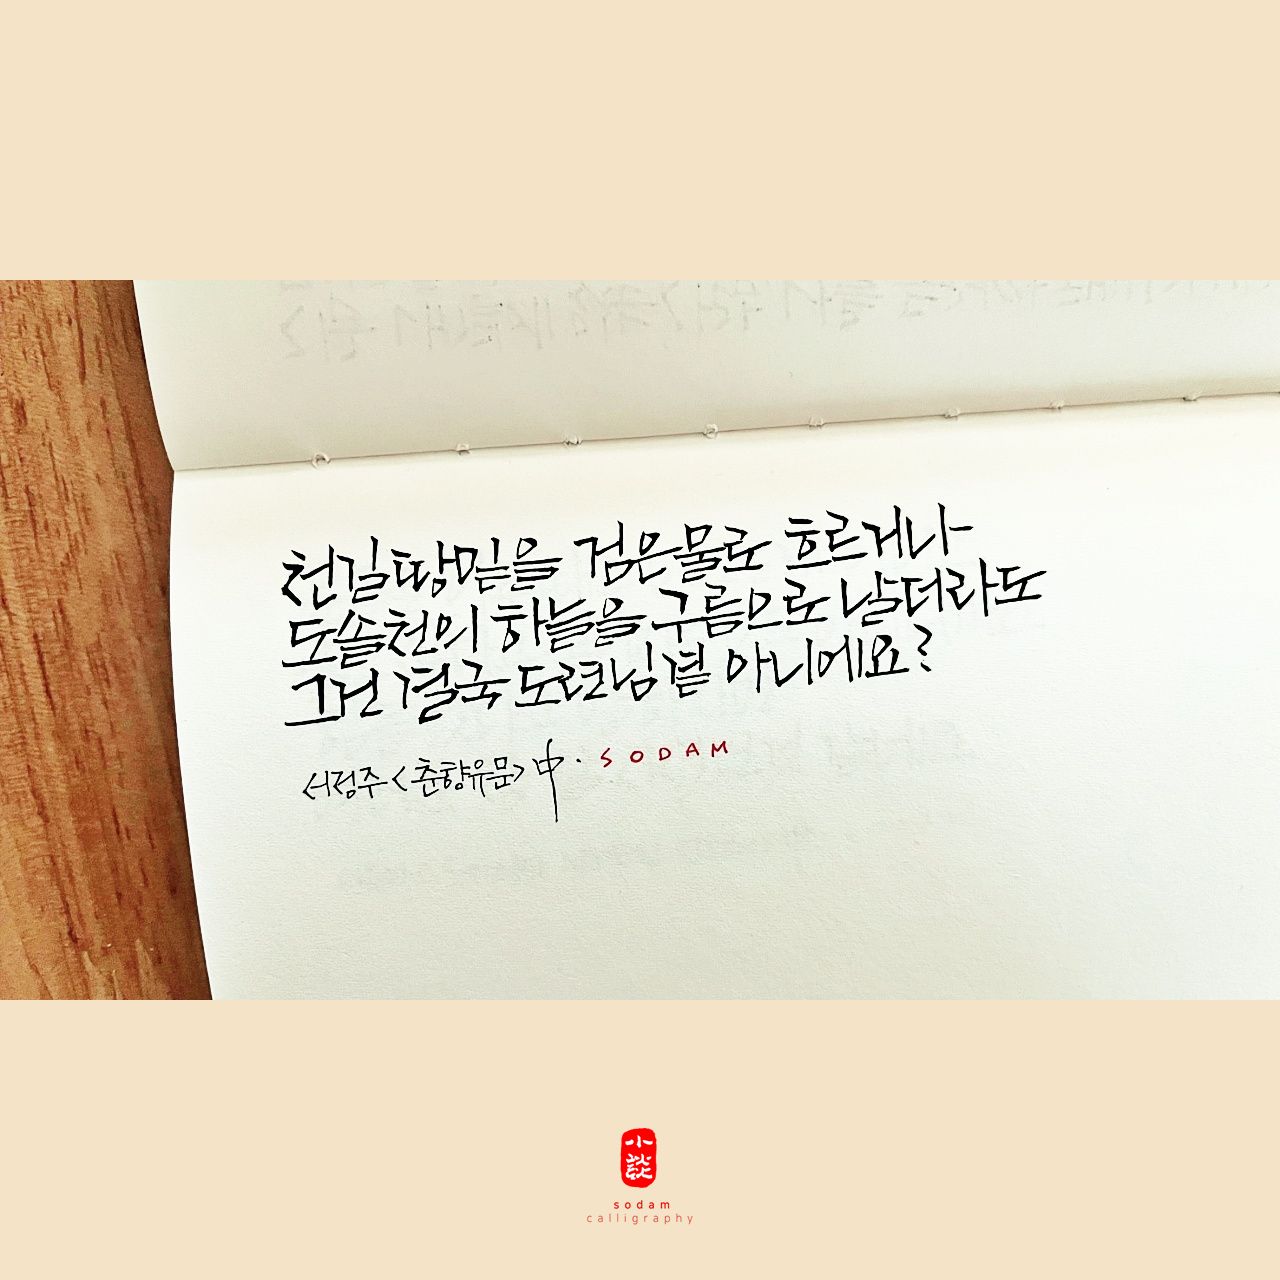 천길 땅밑을 검은 물로 흐르거나
도솔천의 하늘을 구름으로 날더라도
그건 결국 도련님 곁 아니에요?
서정주 <춘향유문> 中 · SODAM
小談
sodam
calligraphy